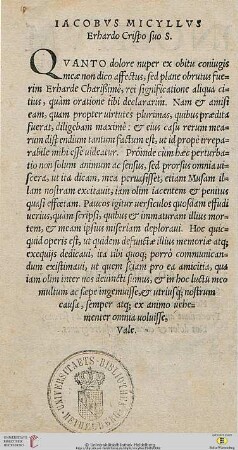 IACOBVS MICYLLVS
Erhardo Crispo suo S.
QVANTO dolore nuper ex obitu coniugis
meæ non dico affectus, sed plane obrutus fue-
rim Erharde Charissime, rei significatione aliqua ci-
tius, quàm oratione tibi declararim. Nam & amisi
eam, quam propter uirtutes plurimas, quibus prædita
fuerat, diligebam maximè: & eius casu rerum mearum
dispendium tantum factum est, ut id propè irrepa-
rabile mihi esse uideatur. Proinde cùm hæc perturba-
tio non solum animum ac sensus, sed prorsus omnia
uscerat, ut ita dicam, mea peruasisset, etiam Musam il-
lam nostram excitauit, iam olim iacentem & penitus
quasi effœtam. Paucos igitur uersiculos quosdam effudi
uerius, quàm scripsi, quibus & immaturam illius mor-
tem, & meam ipsius miseriam deploraui. Hoc quic-
quid operis est, ut quidem defunctæ illius memoriæ atq;
exequijs dedicaui, ita tibi quoq; porrò communican-
dum existimaui, ut quem sciam pro ea amicitia, quæ
iam olim inter nos deuincti simus, & in hoc luctu meo
multum ac sæpe ingemuisse, & utriusq; nostrum
causa, semper atq; ex animo uehe-
menter omnia uoluisse.
Vale.
UNIVERSITAETS-BIBLIOTHEK
HEIDELBERG